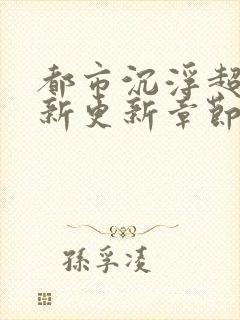 都市沉浮超
新更新章節
孫孚凌